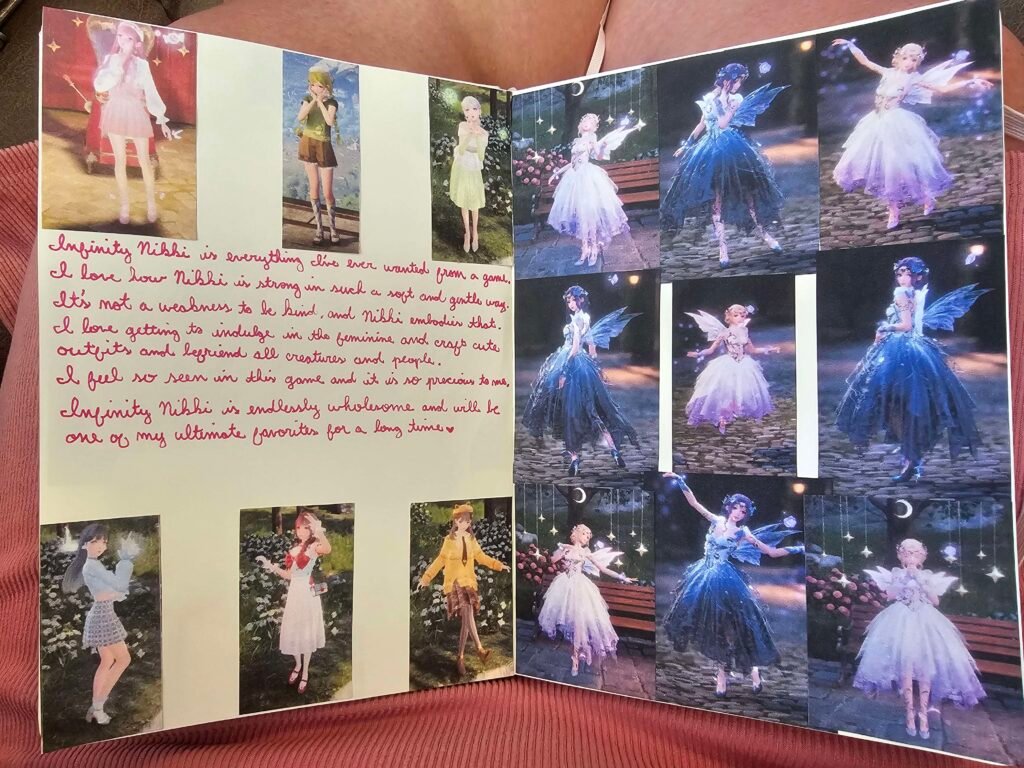 Infinity Nikki is everything I've ever wanted from a game.
I love how Nikki is strong in such a soft and gentle way.
It's not a weakness to be kind, and Nikki embodies that.
I love getting to indulge in the feminine and craft cute
outfits and befriend all creatures and people.
I feel so seen in this game and it is so precious to me,
Infinity Nikki is endlessly wholesome and will be
one of my ultimate favorites for a long time ♥